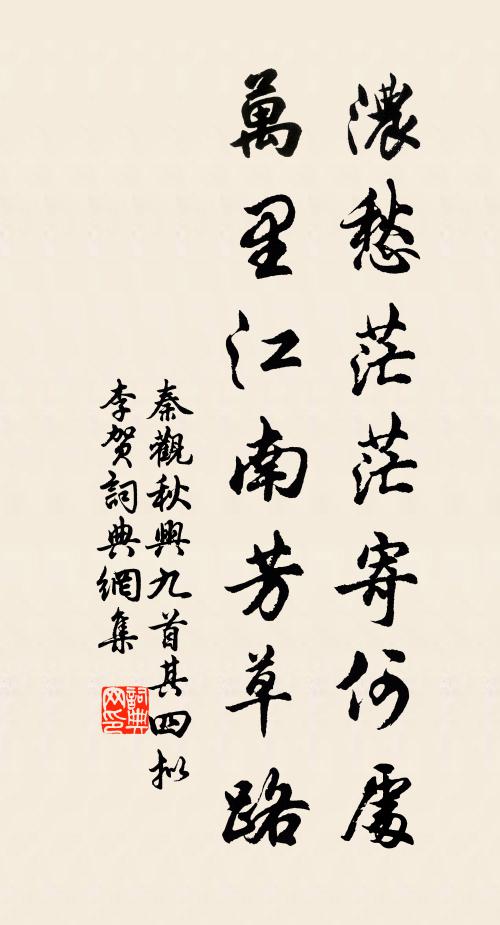 濃愁茫茫寄何處
萬里江南芳草路
秦觀秋興九首其四拟
李賀詞典網集
詞典網印